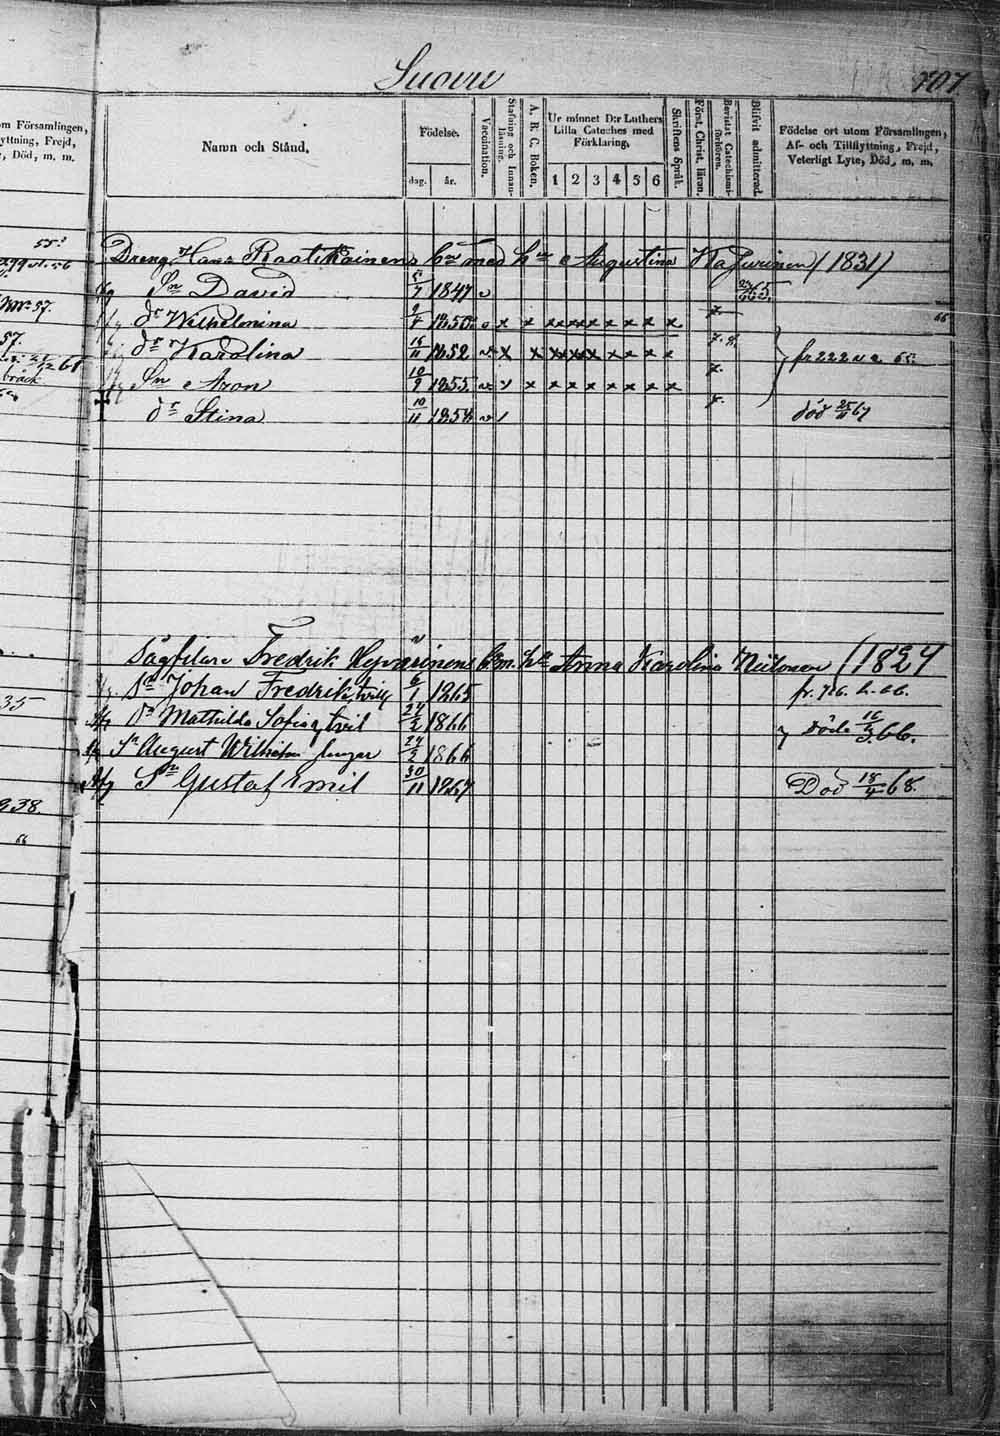 707
om Församlingen,
yttning, Frejd,
, Död, m. m.
Namn och Stånd.
Födelse.
dag. år.
Vaccination.
Stafning och Innan-läsning.
A. B. C. Boken.
Ur minnet D:r Luthers Lilla Cateches med Förklaring.
1 2 3 4 5 6
Skriftens Språk.
Först. Christ. läran.
Bevistat Catechismi-förhören.
Blifvit admitterad.
Födelse ort utom Församlingen,
Af- och Tillflyttning, Frejd,
Veterligt Lyte, Död, m. m.
Dreng Hans Raatikainens bn med h:u Augustina (1831)
Sn David 5/7 1847 v
dr Wilhelmina 9/4 1850 v x x x x x x x x x x
dr Karolina 1852 v x x x x x x x x x fr 222 65.
Sn Aron 10/9 1855 v x x x x x x x x x
dr Stina 10/11 1858 v död 25/11 67
Sågfilare Fredrik Hyvärinens b m. h:u Anna Karolina (1827
Sn Johan Fredrik, tvill 6/1 1865
Dr Mathilda Sofia, tvil 24/2 1866 döde 16/3 66.
Sn August Wilhelm 24/2 1866
Sn Gustaf Emil 30/11 1867 Död 18/4 68.
35
938.